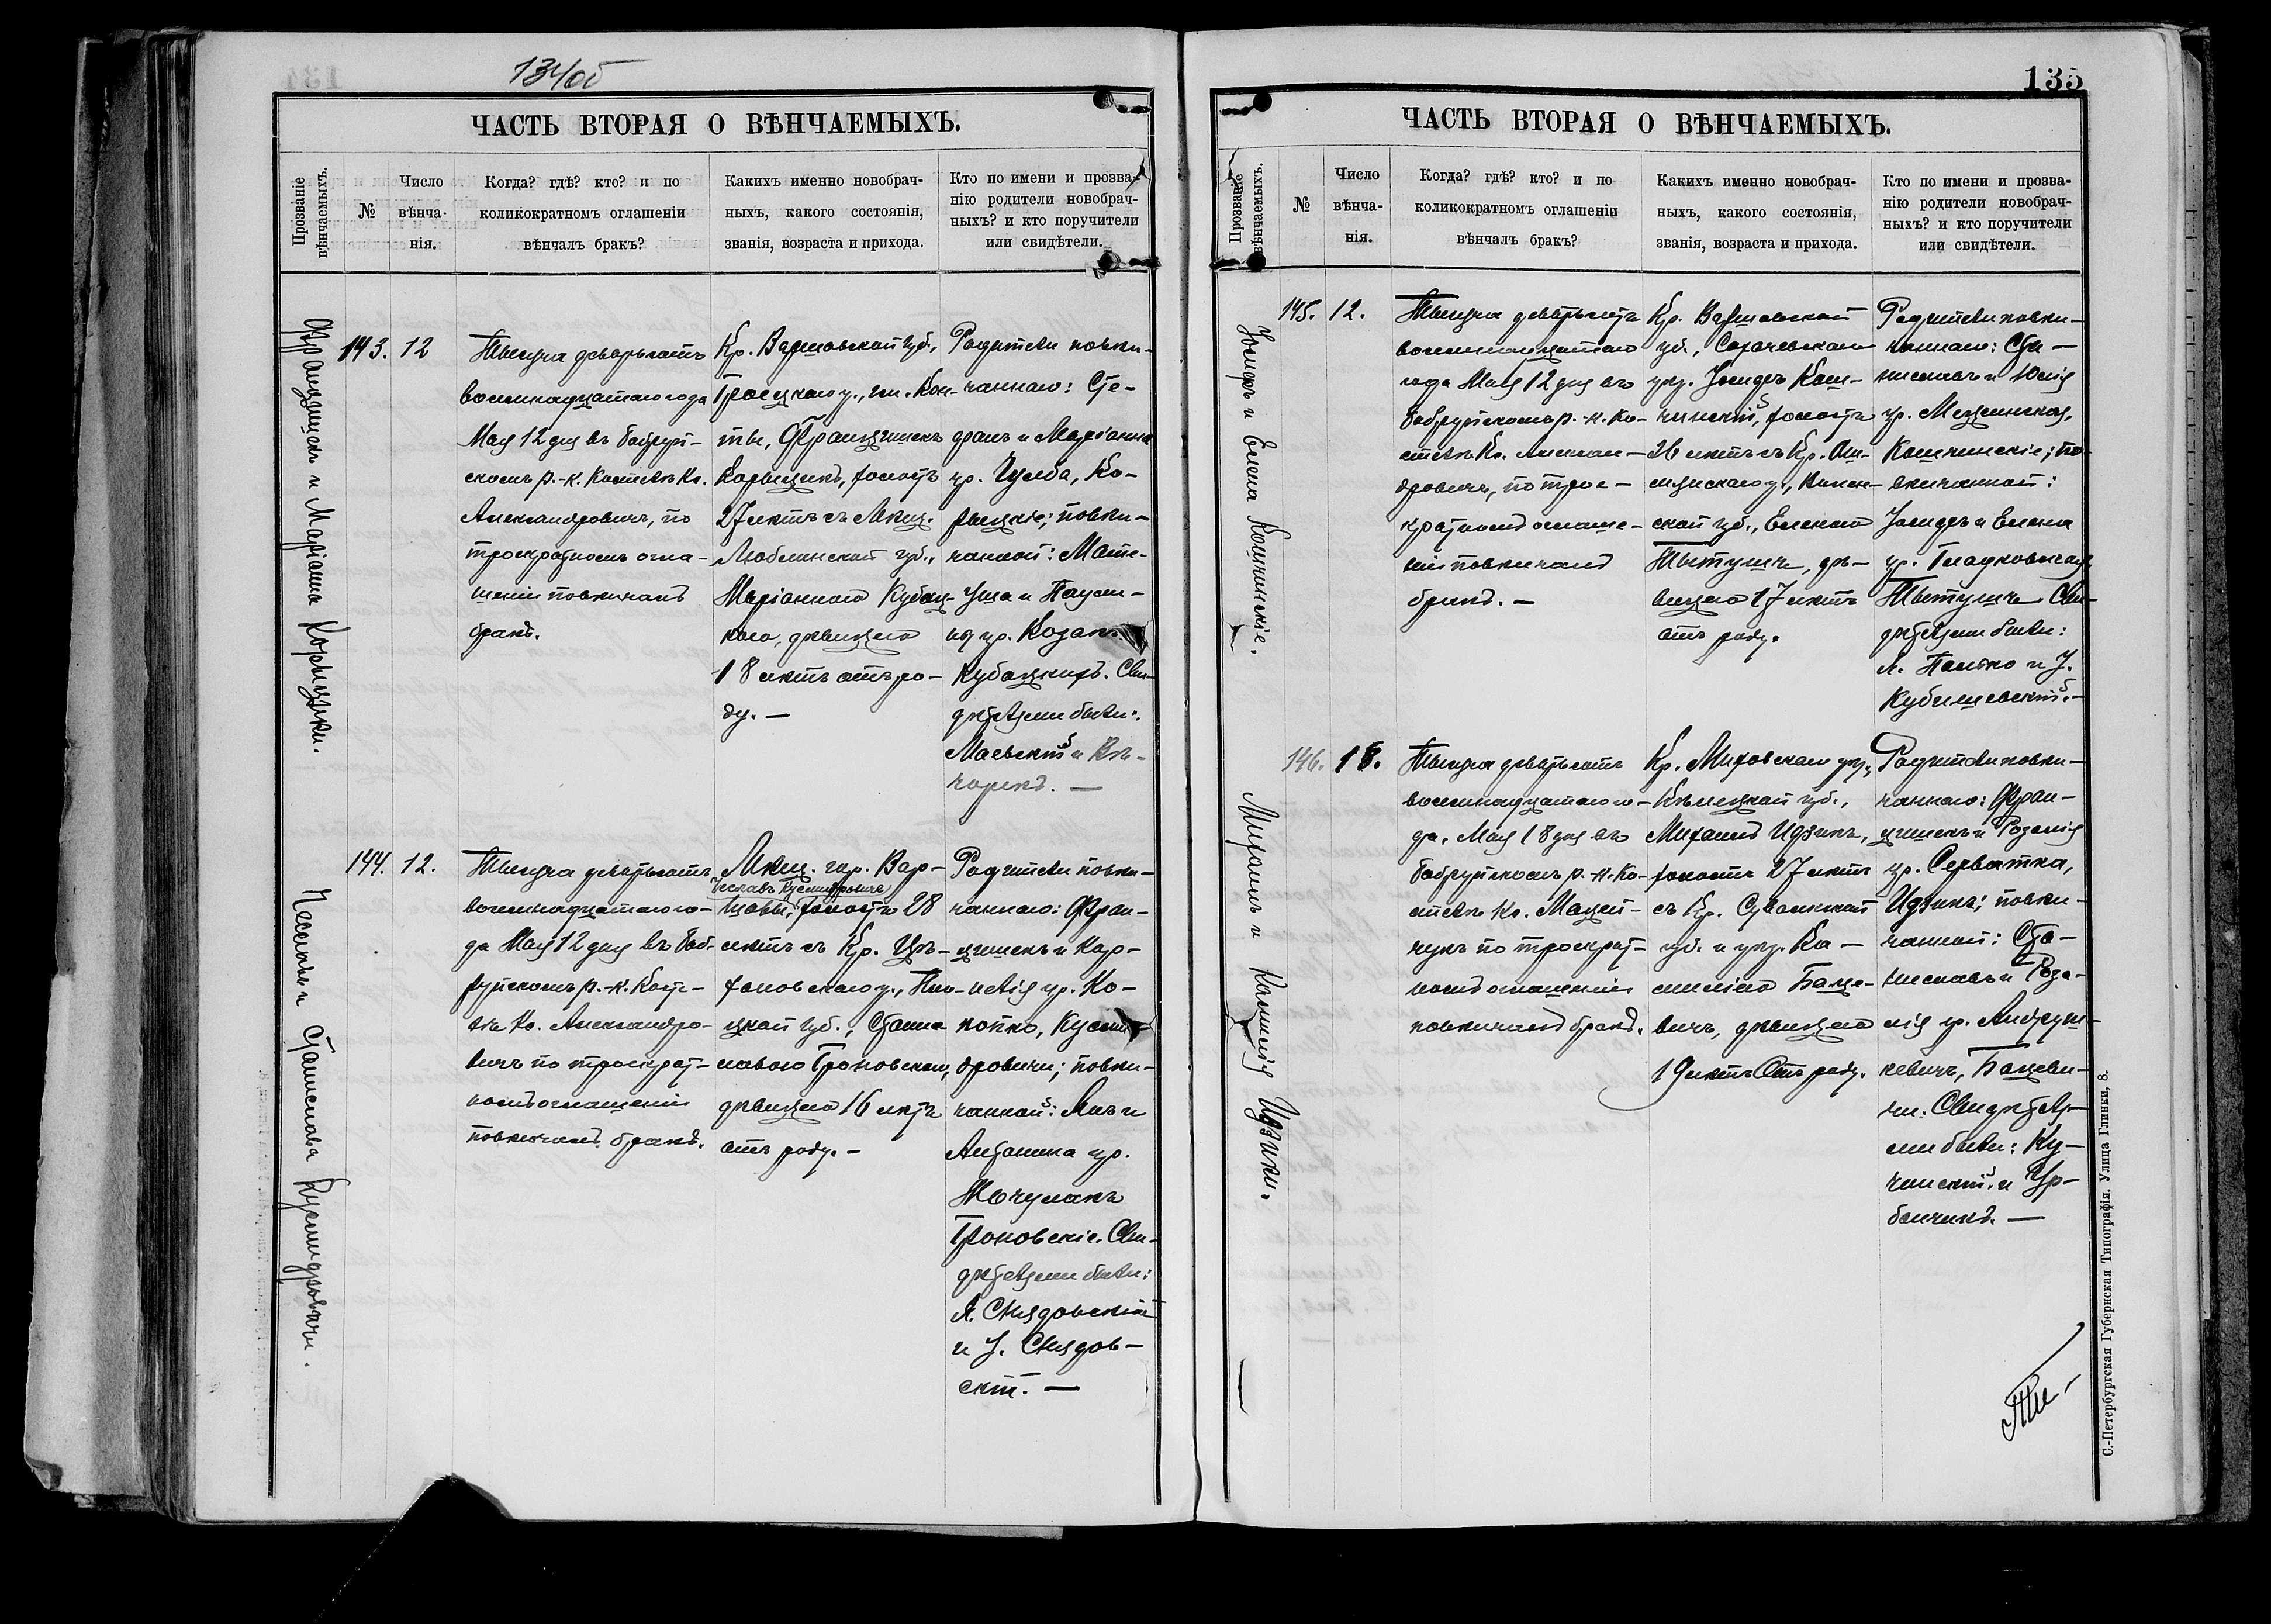 134об
ЧАСТЬ ВТОРАЯ О ВѢНЧАЕМЫХЪ.
Прозваніе вѣнчаемыхъ.
№
Число
вѣнча-
нія.
Когда? гдѣ? кто? и по
коликократномъ оглашеніи
вѣнчалъ бракъ?
Какихъ именно новобрач-
ныхъ, какого состоянія,
званія, возраста и прихода.
Кто по имени и прозва-
нію родители новобрач-
ныхъ? и кто поручители
или свидѣтели.
Францишекъ и Маріанна
143. 12
Тысуча девятьсотъ
восемнадцатаго года
Мая 12 дня въ Бобруй-
скомъ р.-к. Костелѣ Кс.
Александровичъ, по
троекратномъ огла-
шеніи повѣнчалъ
бракъ.
Кр. Варшавской губ.,
Гроецкаго у., гм. Кон-
ты, Францишекъ
холостъ
27 лѣтъ съ Мѣщ.
Люблинской губ.,
Маріанною Кубац-
кою, дѣвицею
18 лѣтъ отъ ро-
ду. —
Родители повѣн-
чаннаго: Сте-
фанъ и Маріанна
ур. Чулба, Ко-
повѣн-
чанной: Мате-
уша и Паули-
ны ур. Козакъ
Кубацкихъ. Сви-
дѣтелями были:
Маевскій и Вѣ-
чорекъ. —
Чеславъ и Станислава Кушмидровичи.
144. 12.
Тысуча девятьсотъ
восемнадцатаго го-
да Мая 12 дня въ Боб-
руйскомъ р.-к. Косте-
лѣ Кс. Александро-
вичъ по троекрат-
номъ оглашеніи
повѣнчалъ бракъ.
Мѣщ. гор. Вар-
Чеславъ Кусмидровичъ
шавы, холостъ 28
лѣтъ съ Кр. Цѣ-
хановскаго у., Пло-
цкой губ., Станис-
лавою Гроновскою,
дѣвицею 16 лѣтъ
отъ роду. —
Родители повѣн-
чаннаго: Фран-
цишекъ и Кор-
нелія ур. Ко-
попко, Кусми-
дровичи; повѣн-
чанной: Янъ и
Антонина ур.
Мочулакъ
Гроновскіе. Сви-
дѣтелями были:
Я. Снядовскій
и І. Снядов-
скій. —
135
ЧАСТЬ ВТОРАЯ О ВѢНЧАЕМЫХЪ.
Прозваніе вѣнчаемыхъ.
№
Число
вѣнча-
нія.
Когда? гдѣ? кто? и по
коликократномъ оглашеніи
вѣнчалъ бракъ?
Какихъ именно новобрач-
ныхъ, какого состоянія,
званія, возраста и прихода.
Кто по имени и прозва-
нію родители новобрач-
ныхъ? и кто поручители
или свидѣтели.
Іосифъ и Елена Кошчинскіе.
145. 12.
Тысуча девятьсотъ
восемнадцатаго
года Мая 12 дня въ
Бобруйскомъ р.-к. Ко-
стелѣ Кс. Алексан-
дровичъ, по трое-
кратномъ оглаше-
ніи повѣнчалъ
бракъ. —
Кр. Варшавской
губ., Сохачевскаго
уѣз. Іосифъ Кош-
чинскій, холостъ
26 лѣтъ съ Кр. Ош-
мянскаго у., Вилен-
ской губ., Еленою
Тытушъ, дѣ-
вицею 17 лѣтъ
отъ роду.
Родители повѣн-
чаннаго: Ста-
ниславъ и Юлія
ур. Мещинская,
Кошчинскіе; по-
вѣнчанной:
Іосифъ и Елена
ур. Гладковская
Тытушъ. Сви-
дѣтелями были:
Я. Палько и І.
Кубишевскій. —
Михаилъ и Камилія Идзики.
146. 18.
Тысуча девятьсотъ
восемнадцатаго го-
да, Мая 18 дня въ
Бобруйскомъ р.-к. Ко-
стелѣ Кс. Мацей-
чукъ по троекрат-
номъ оглашеніи
повѣнчалъ бракъ.
Кр. Мѣховскаго уѣз.,
Кѣлецкой губ.,
Михаилъ Идзикъ,
холостъ 27 лѣтъ
съ Кр. Сувалкской
губ. и уѣз. Ка-
милією Баце-
вичъ, дѣвицею
19 лѣтъ отъ роду.
Родители повѣн-
чаннаго: Фран-
цишекъ и Розалія
ур. Серватка,
Идзикъ; повѣн-
чанной: Ста-
ниславъ и Роза-
лія ур. Андруш-
кевичъ, Бацеви-
чи. Свидѣтеля-
ми были: Ку-
чинскій и Ур-
банчикъ. —
С.-Петербургская Губернская Типографія. Улица Глинки, 8.